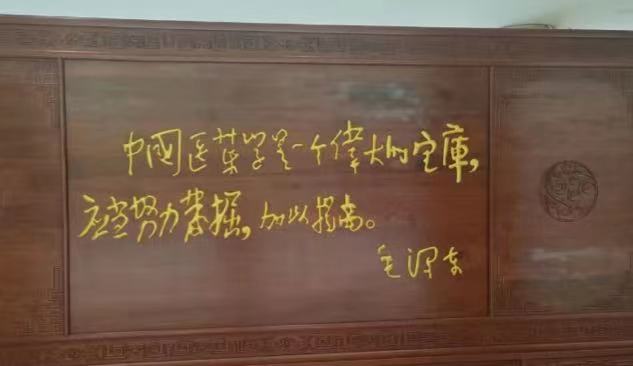 中國医藥学是一个偉大的宝庫，
应当努力發掘，加以提高。
毛泽东